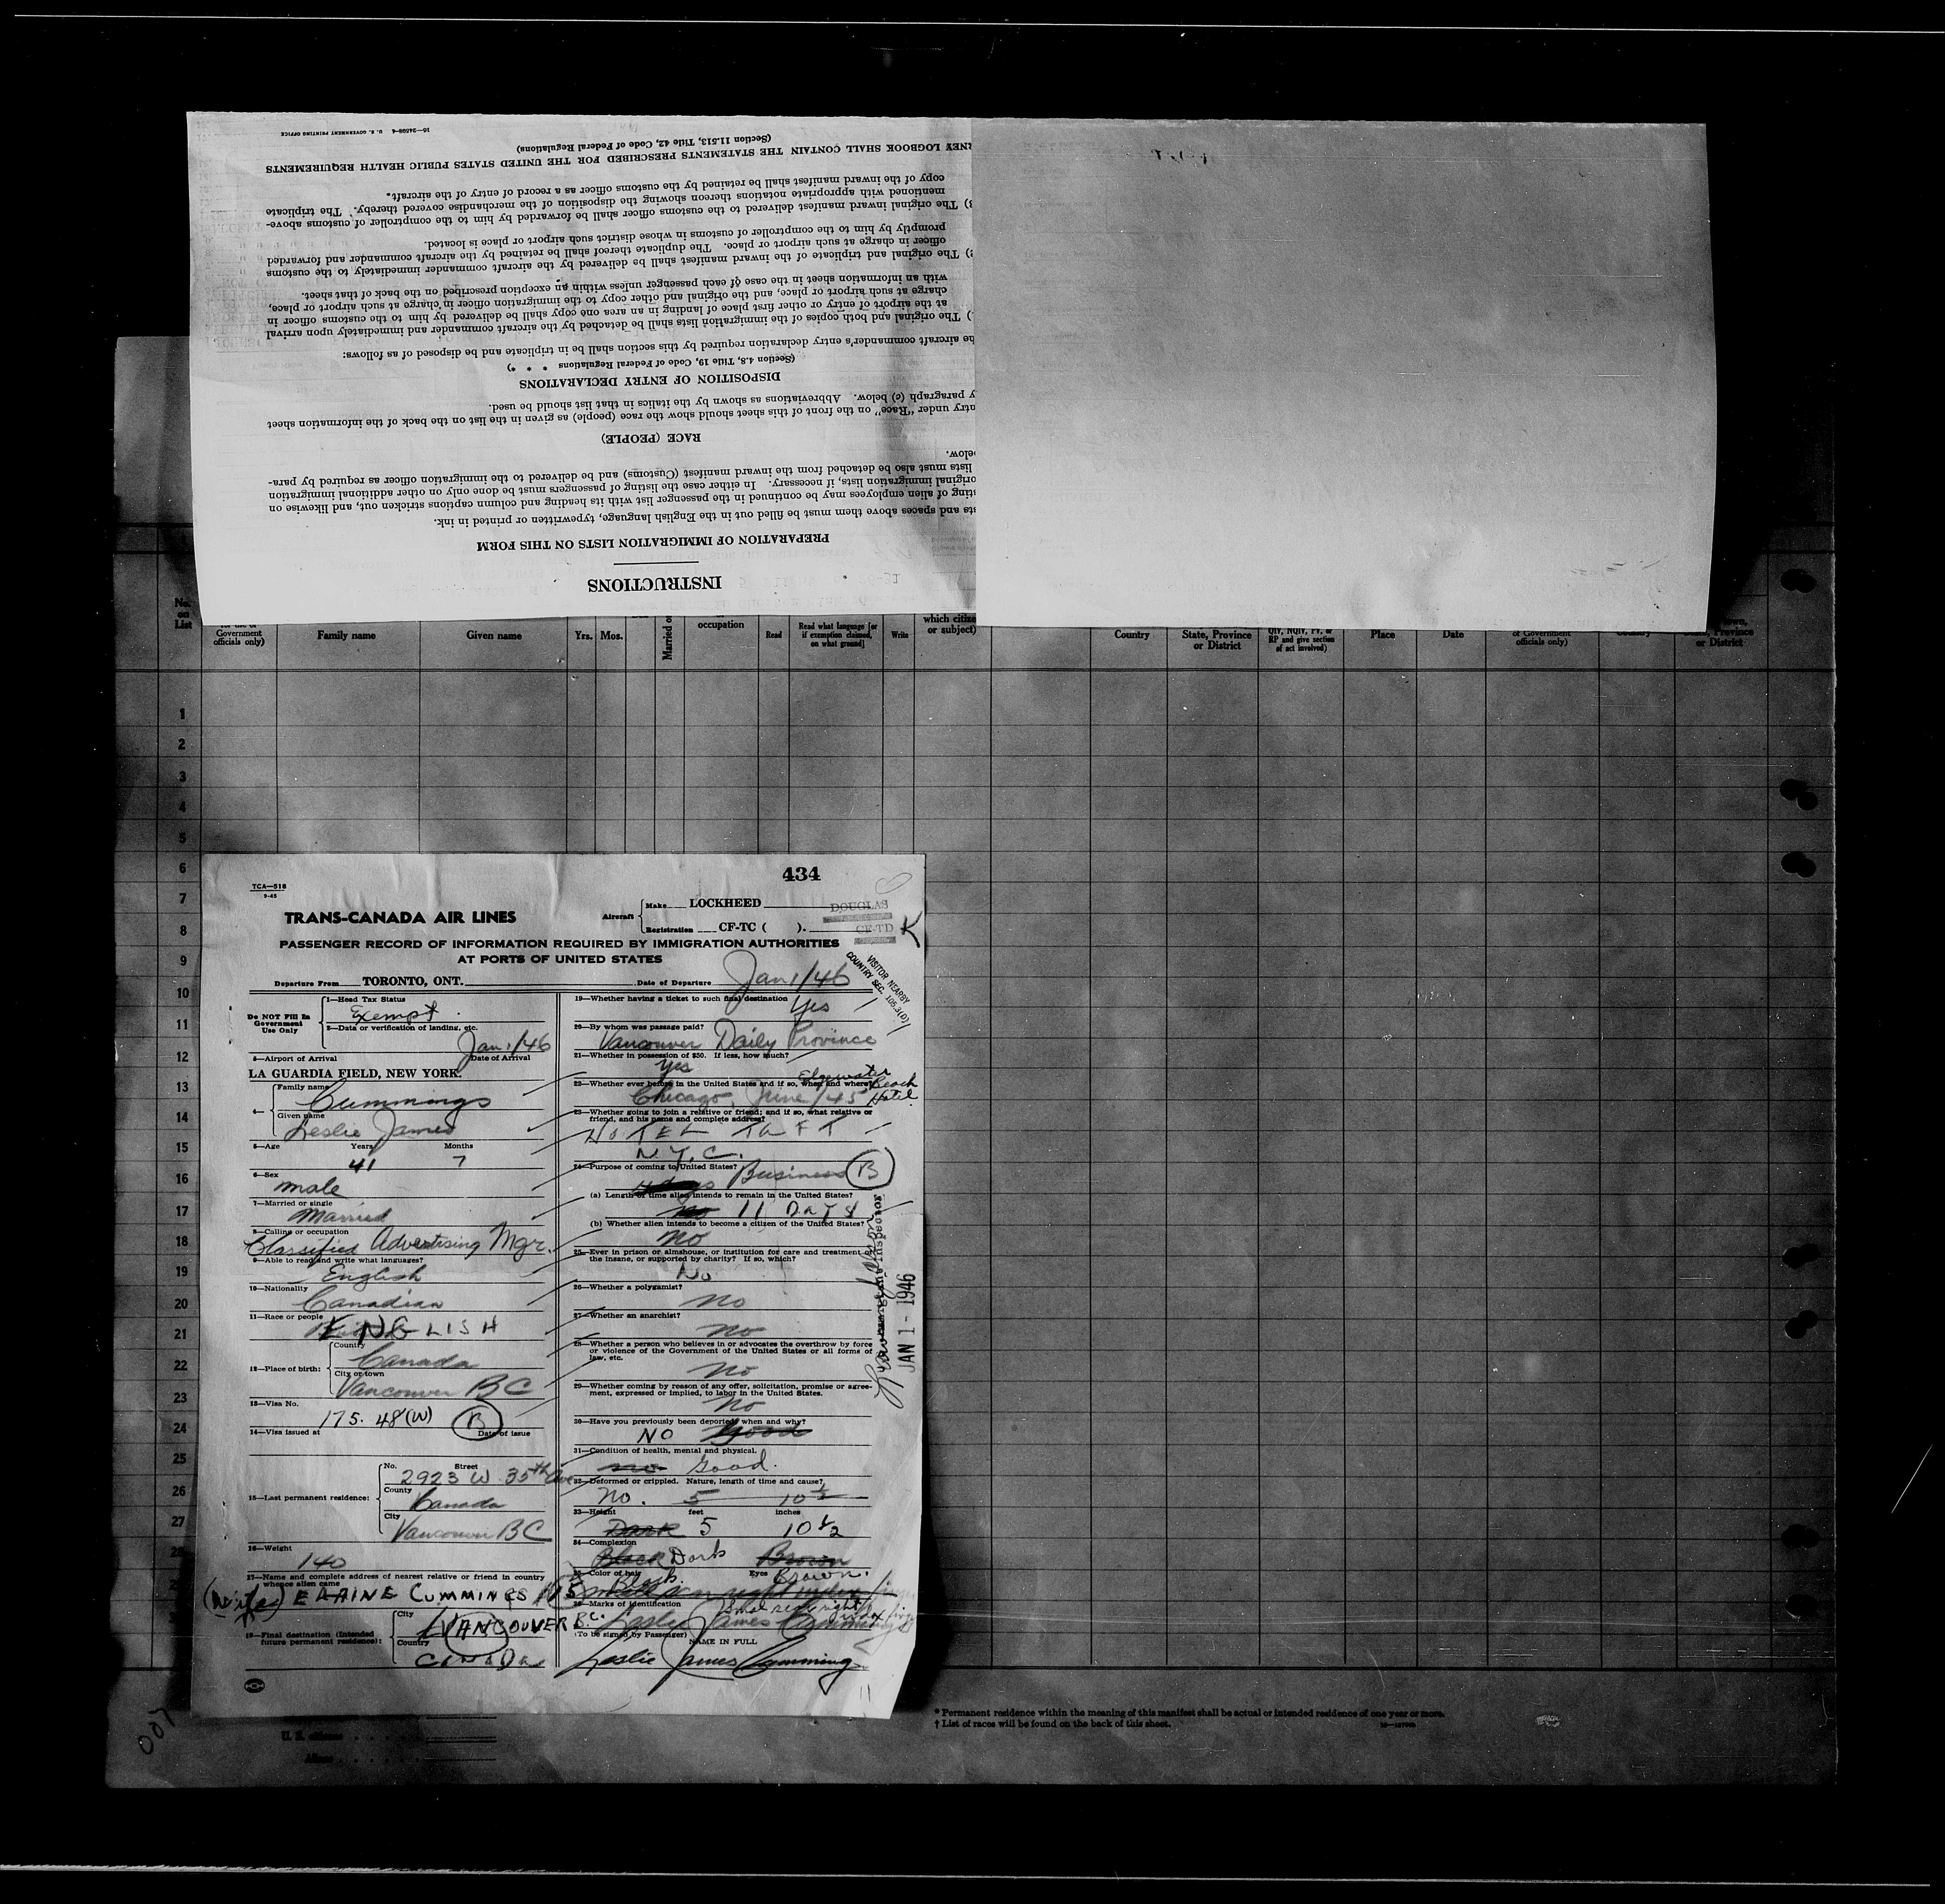 16—24508-4 U. S. GOVERNMENT PRINTING OFFICE
(Section 11.513, Title 42, Code of Federal Regulations)
LOGBOOK SHALL CONTAIN THE STATEMENTS PRESCRIBED FOR THE UNITED STATES PUBLIC HEALTH REQUIREMENTS
copy of the inward manifest shall be retained by the customs officer as a record of entry of the aircraft.
mentioned with appropriate notations thereon showing the disposition of the merchandise covered thereby. The triplicate
) The original inward manifest delivered to the customs officer shall be forwarded by him to the comptroller of customs above-
promptly by him to the comptroller of customs in whose district such airport or place is located.
officer in charge at such airport or place. The duplicate thereof shall be retained by the aircraft commander and forwarded
) The original and triplicate of the inward manifest shall be delivered by the aircraft commander immediately to the customs
with an information sheet in the case of each passenger unless within an exception prescribed on the back of that sheet.
charge at such airport or place, and the original and other copy to the immigration officer in charge at such airport or place,
at the airport of entry or other first place of landing in an area one copy shall be delivered by him to the customs officer in
) The original and both copies of the immigration lists shall be detached by the aircraft commander and immediately upon arrival
he aircraft commander's entry declaration required by this section shall be in triplicate and be disposed of as follows:
(Section 4.8, Title 19, Code of Federal Regulations * * *)
DISPOSITION OF ENTRY DECLARATIONS
y paragraph (c) below. Abbreviations as shown by the italics in that list should be used.
ntry under "Race" on the front of this sheet should show the race (people) as given in the list on the back of the information sheet
RACE (PEOPLE)
elow.
lists must also be detached from the inward manifest (Customs) and be delivered to the immigration officer as required by para-
original immigration lists, if necessary. In either case the listing of passengers must be done only on other additional immigration
sting of alien employees may be continued in the passenger list with its heading and column captions stricken out, and likewise on
sts and spaces above them must be filled out in the English language, typewritten or printed in ink.
PREPARATION OF IMMIGRATION LISTS ON THIS FORM
INSTRUCTIONS
No. on List
Government officials only)
Family name
Given name
Yrs.
Mos.
Married or
occupation
Read
Read what language [or if exemption claimed, on what ground]
Write
which citize
or subject)
Country
State, Province or District
QIV, NQIV, PV, or RP and give section of act involved)
Place
Date
of Government officials only)
State, Province or District
1
2
3
4
5
6
7
8
9
10
11
12
13
14
15
16
17
18
19
20
21
22
23
24
25
26
27
28
434
TCA—516
9-45
TRANS-CANADA AIR LINES
Aircraft
Make LOCKHEED DOUGLAS
Registration CF-TC ( ). CF-TD K
PASSENGER RECORD OF INFORMATION REQUIRED BY IMMIGRATION AUTHORITIES
AT PORTS OF UNITED STATES
VISITOR NEARBY
COUNTRY SEC. 105.3(D)
Departure From TORONTO, ONT. Date of Departure Jan 1/46
Do NOT Fill In Government Use Only
1—Head Tax Status
Exempt
2—Data or verification of landing, etc.
Jan 1/46
3—Airport of Arrival Date of Arrival
LA GUARDIA FIELD, NEW YORK.
4— Family name
Cummings
Given name
Leslie James
5—Age Years Months
41 7
6—Sex
male
7—Married or single
Married
8—Calling or occupation
Classified Advertising Mgr.
9—Able to read and write what languages?
English
10—Nationality
Canadian
11—Race or people
ENGLISH
12—Place of birth:
Country
Canada
City or town
Vancouver BC
13—Visa No.
175.48(W) B
14—Visa issued at Date of issue
15—Last permanent residence:
No. Street
2923 W 35th Ave
County
Canada
City
Vancouver BC
16—Weight
140
17—Name and complete address of nearest relative or friend in country whence alien came
(Wife) ELAINE CUMMINGS
18—Final destination (Intended future permanent residence):
City
VANCOUVER B.C.
Country
CANADA
19—Whether having a ticket to such final destination
Yes
20—By whom was passage paid?
Vancouver Daily Province
21—Whether in possession of $50. If less, how much?
Yes
22—Whether ever before in the United States and if so, when and where?
Edgewater Beach Hotel
Chicago, June/45
23—Whether going to join a relative or friend; and if so, what relative or friend, and his name and complete address?
HOTEL TAFT
N.Y.C.
24—Purpose of coming to United States?
Business B
(a) Length of time alien intends to remain in the United States?
11 DAYS
(b) Whether alien intends to become a citizen of the United States?
No
25—Ever in prison or almshouse, or institution for care and treatment of the insane, or supported by charity? If so, which?
No
26—Whether a polygamist?
No
27—Whether an anarchist?
No
28—Whether a person who believes in or advocates the overthrow by force or violence of the Government of the United States or all forms of law, etc.
No
29—Whether coming by reason of any offer, solicitation, promise or agreement, expressed or implied, to labor in the United States.
No
30—Have you previously been deported, when and why?
NO Good
31—Condition of health, mental and physical.
no Good.
32—Deformed or crippled. Nature, length of time and cause?
No. 5 10 1/2
33—Height feet inches
Dark 5 10 1/2
34—Complexion
Black Dark Brown
35—Color of hair Eyes
Black. Brown.
small scar right index
36—Marks of identification
Small scar right index
Leslie James Cummings
(To be signed by Passenger) NAME IN FULL
Leslie James Cummings
Immigrant Inspector
JAN 1 - 1946
11
U. S. citizens
Aliens
* Permanent residence within the meaning of this manifest shall be actual or intended residence of one year or more.
† List of races will be found on the back of this sheet.